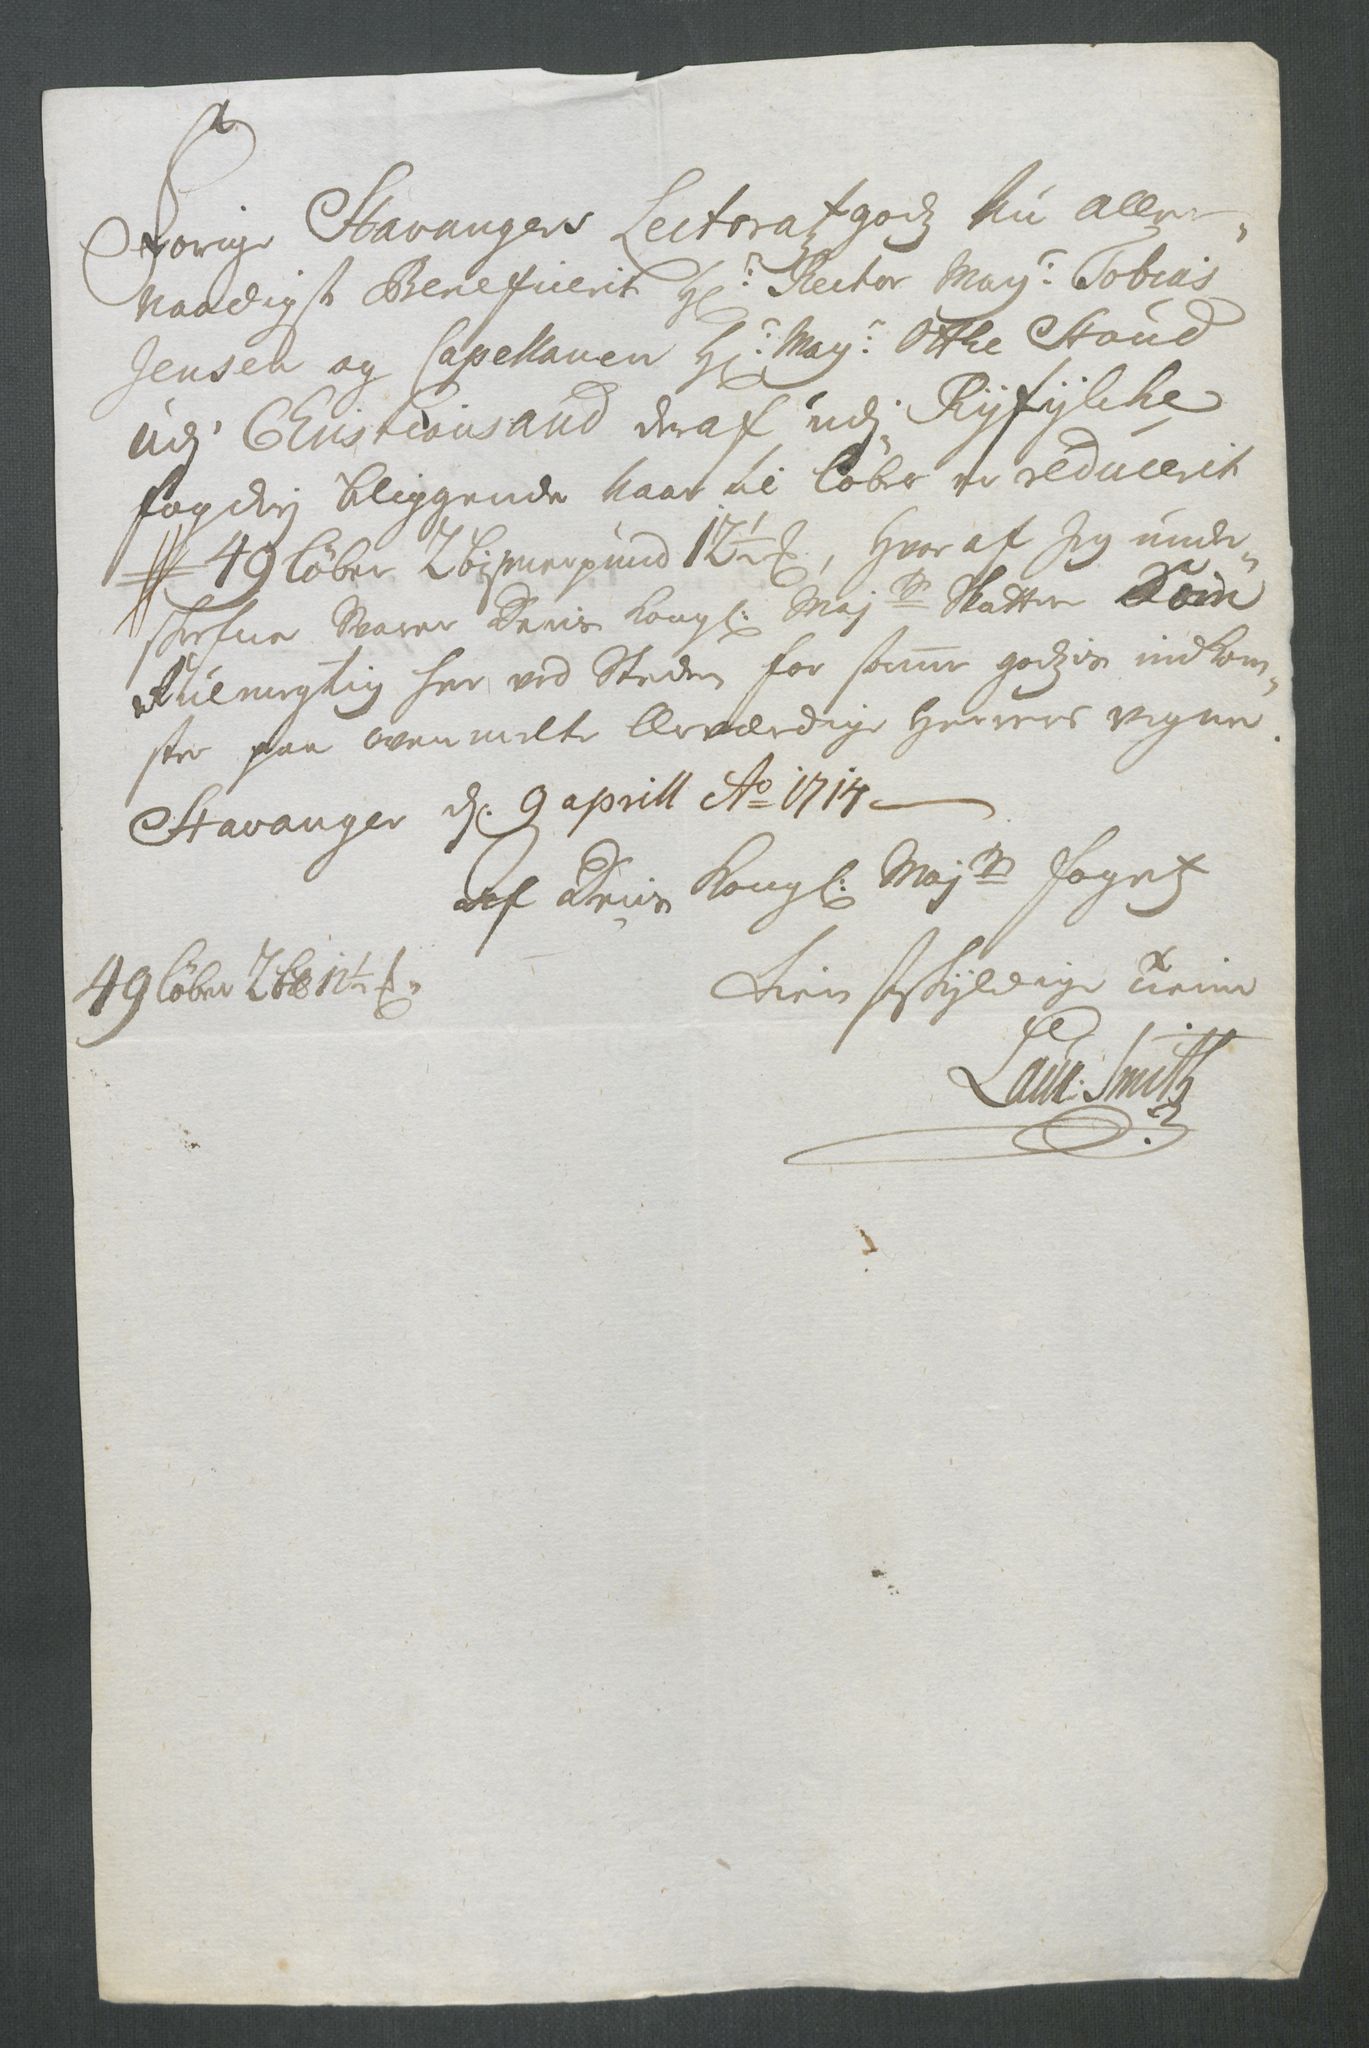 Forige Stavangers Lectoratgodz nu aller-
naadigst Beneficerit Hr: Rector Mag: Tobias
Jensen og Capellanen Hr: Mag: Otthe Stoud
udj Christiansand deraf udj Ryfylche
fogderj beliggende haar til löber er reducerit
49 löber 2 bismerpund 12½ ℔, hvoraf Jeg unde-
skrefne svarer Deris Kongl: Majts Skatter som
fuldmegtig her ved Steden for samme godzis indkom-
ster paa ovenmelte Velærværdige Herrers vegne.
Stavanger d: 9 aprill Ao 1714
af Deris Kongl: Majts foget
49 löber 2 12½ ℔
tienstskyldige tiener
Laur: Smith